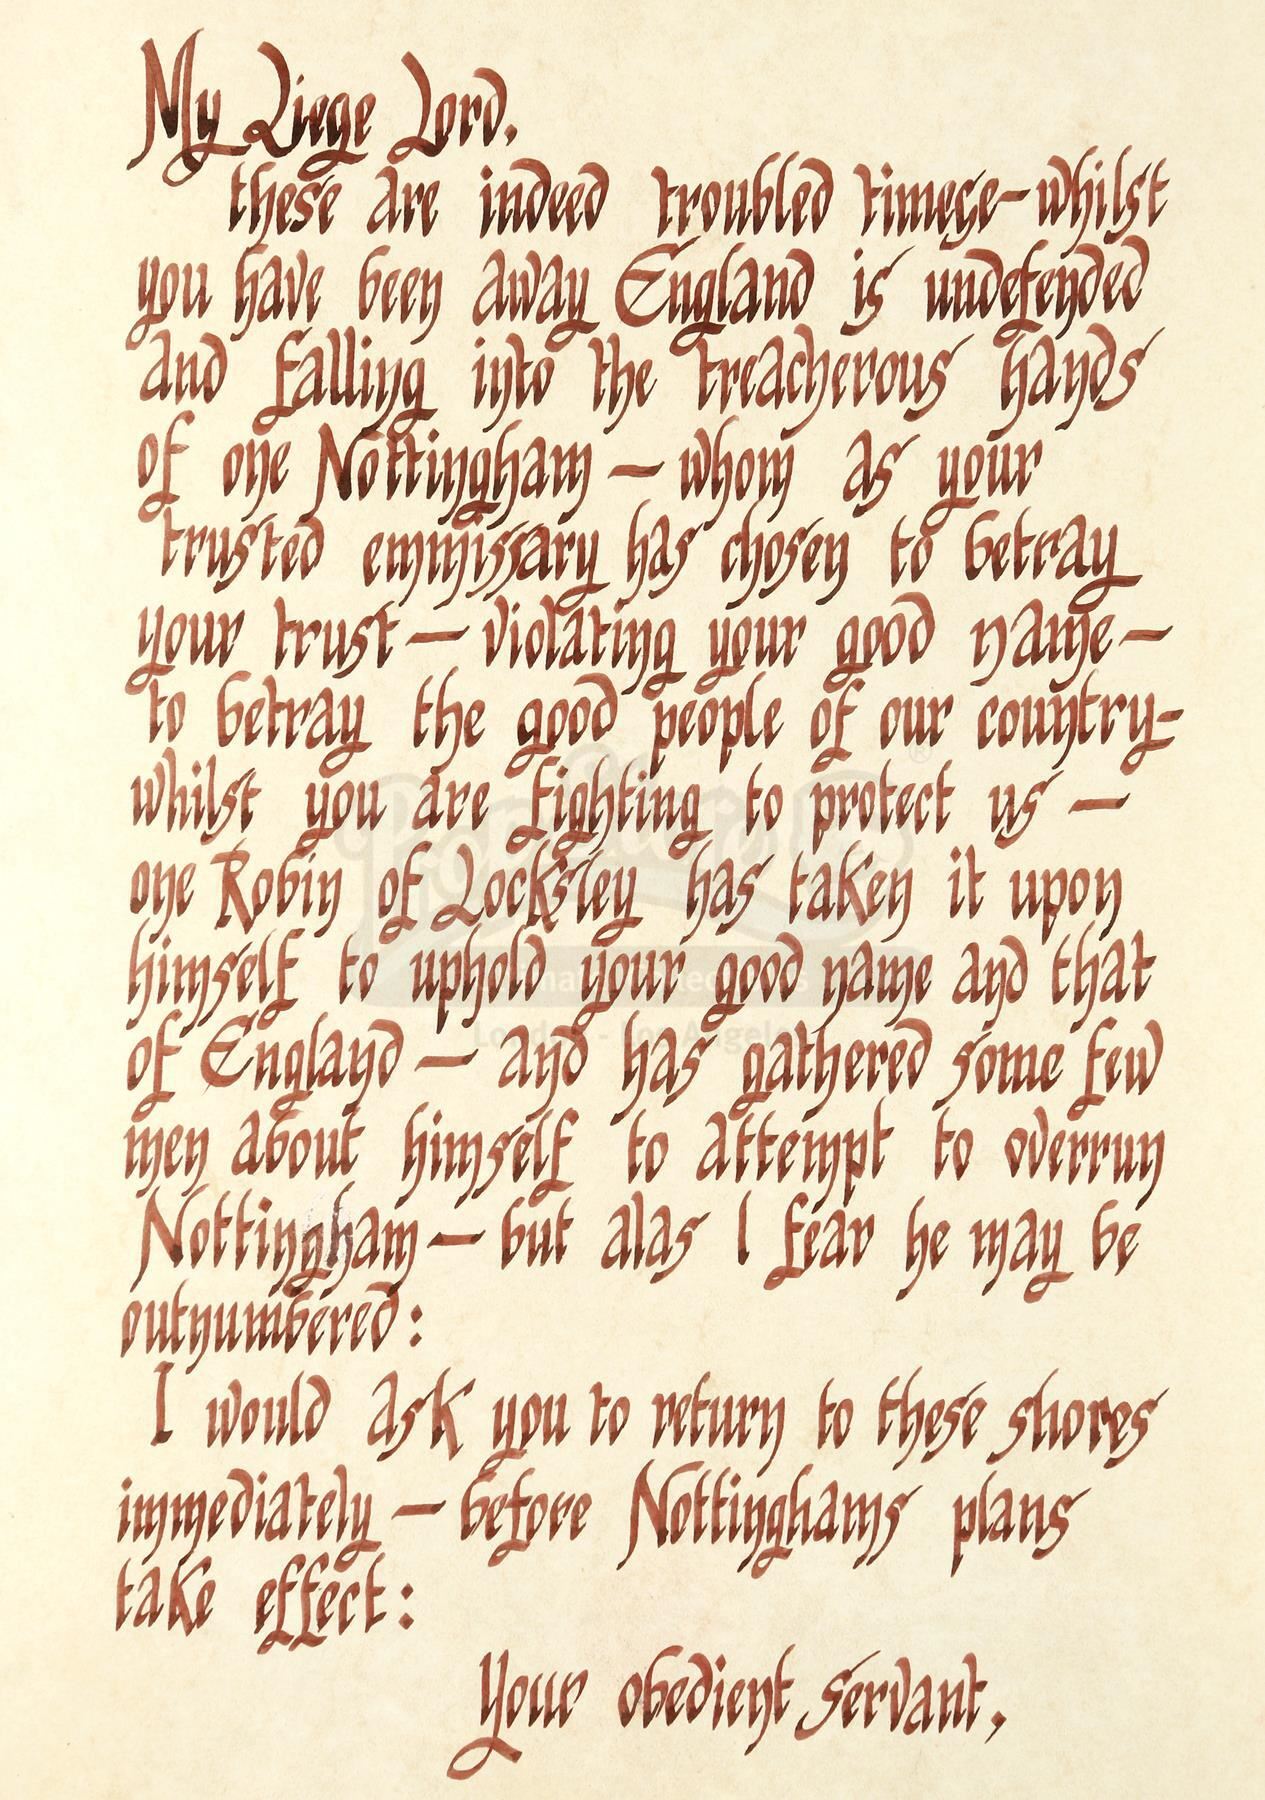 My Liege Lord,
these are indeed troubled timese - whilst
you have been away England is undefended
and falling into the treacherous hands
of one Nottingham — whom as your
trusted emmissary has chosen to betray
your trust — violating your good name —
to betray the good people of our country -
whilst you are fighting to protect us —
one Robin of Locksley has taken it upon
himself to uphold your good name and that
of England — and has gathered some few
men about himself to attempt to overrun
Nottingham — but alas I fear he may be
outnumbered:
I would ask you to return to these shores
immediately — before Nottinghams plans
take effect:
Your obedient servant,
London - Los Angeles